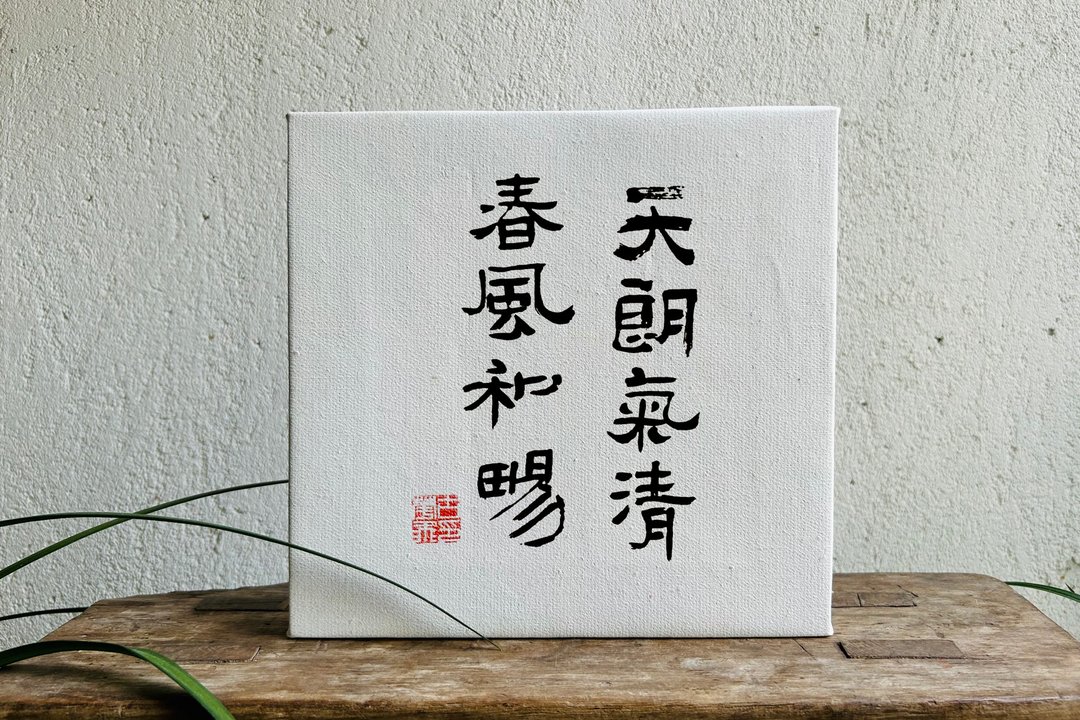 天朗氣清
春風和畼